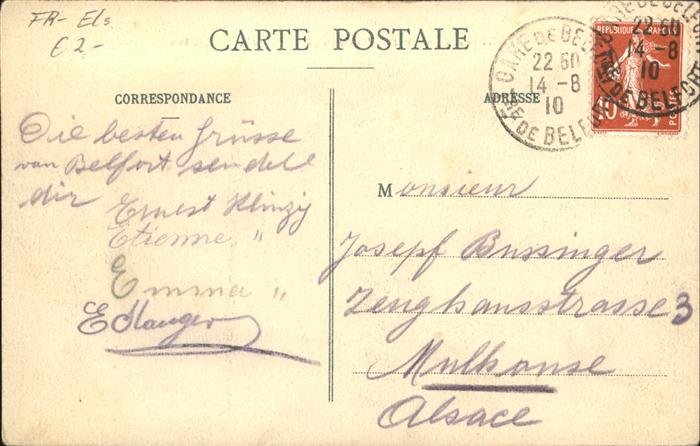 FR- Els
€ 2-
CARTE POSTALE
CORRESPONDANCE
ADRESSE
GARE DE BELFORT
22 60
14 -8
10
TRE DE BELFORT
REPUBLIQUE FRANÇAISE
10
22 60
14 -8
10
DE BELFORT
Die besten Grüsse
van Belfort sendet
dir
Ernest Klinzig
Etienne "
Emma "
Monsieur
Josepf Bussinger
Zeughausstrasse 3
Mulhouse
Alsace